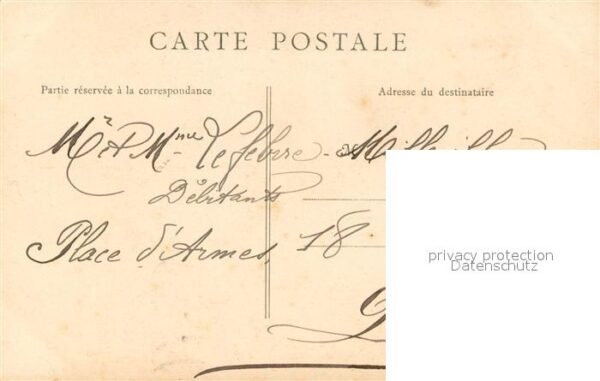 CARTE POSTALE
Partie réservée à la correspondance
Adresse du destinataire
Mr & Mme Lefebvre -
Débitants
Place d'Armes, 18
privacy protection
Datenschutz